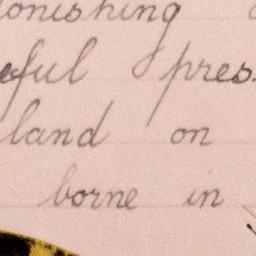 onishing
eful pres
land on
borne in